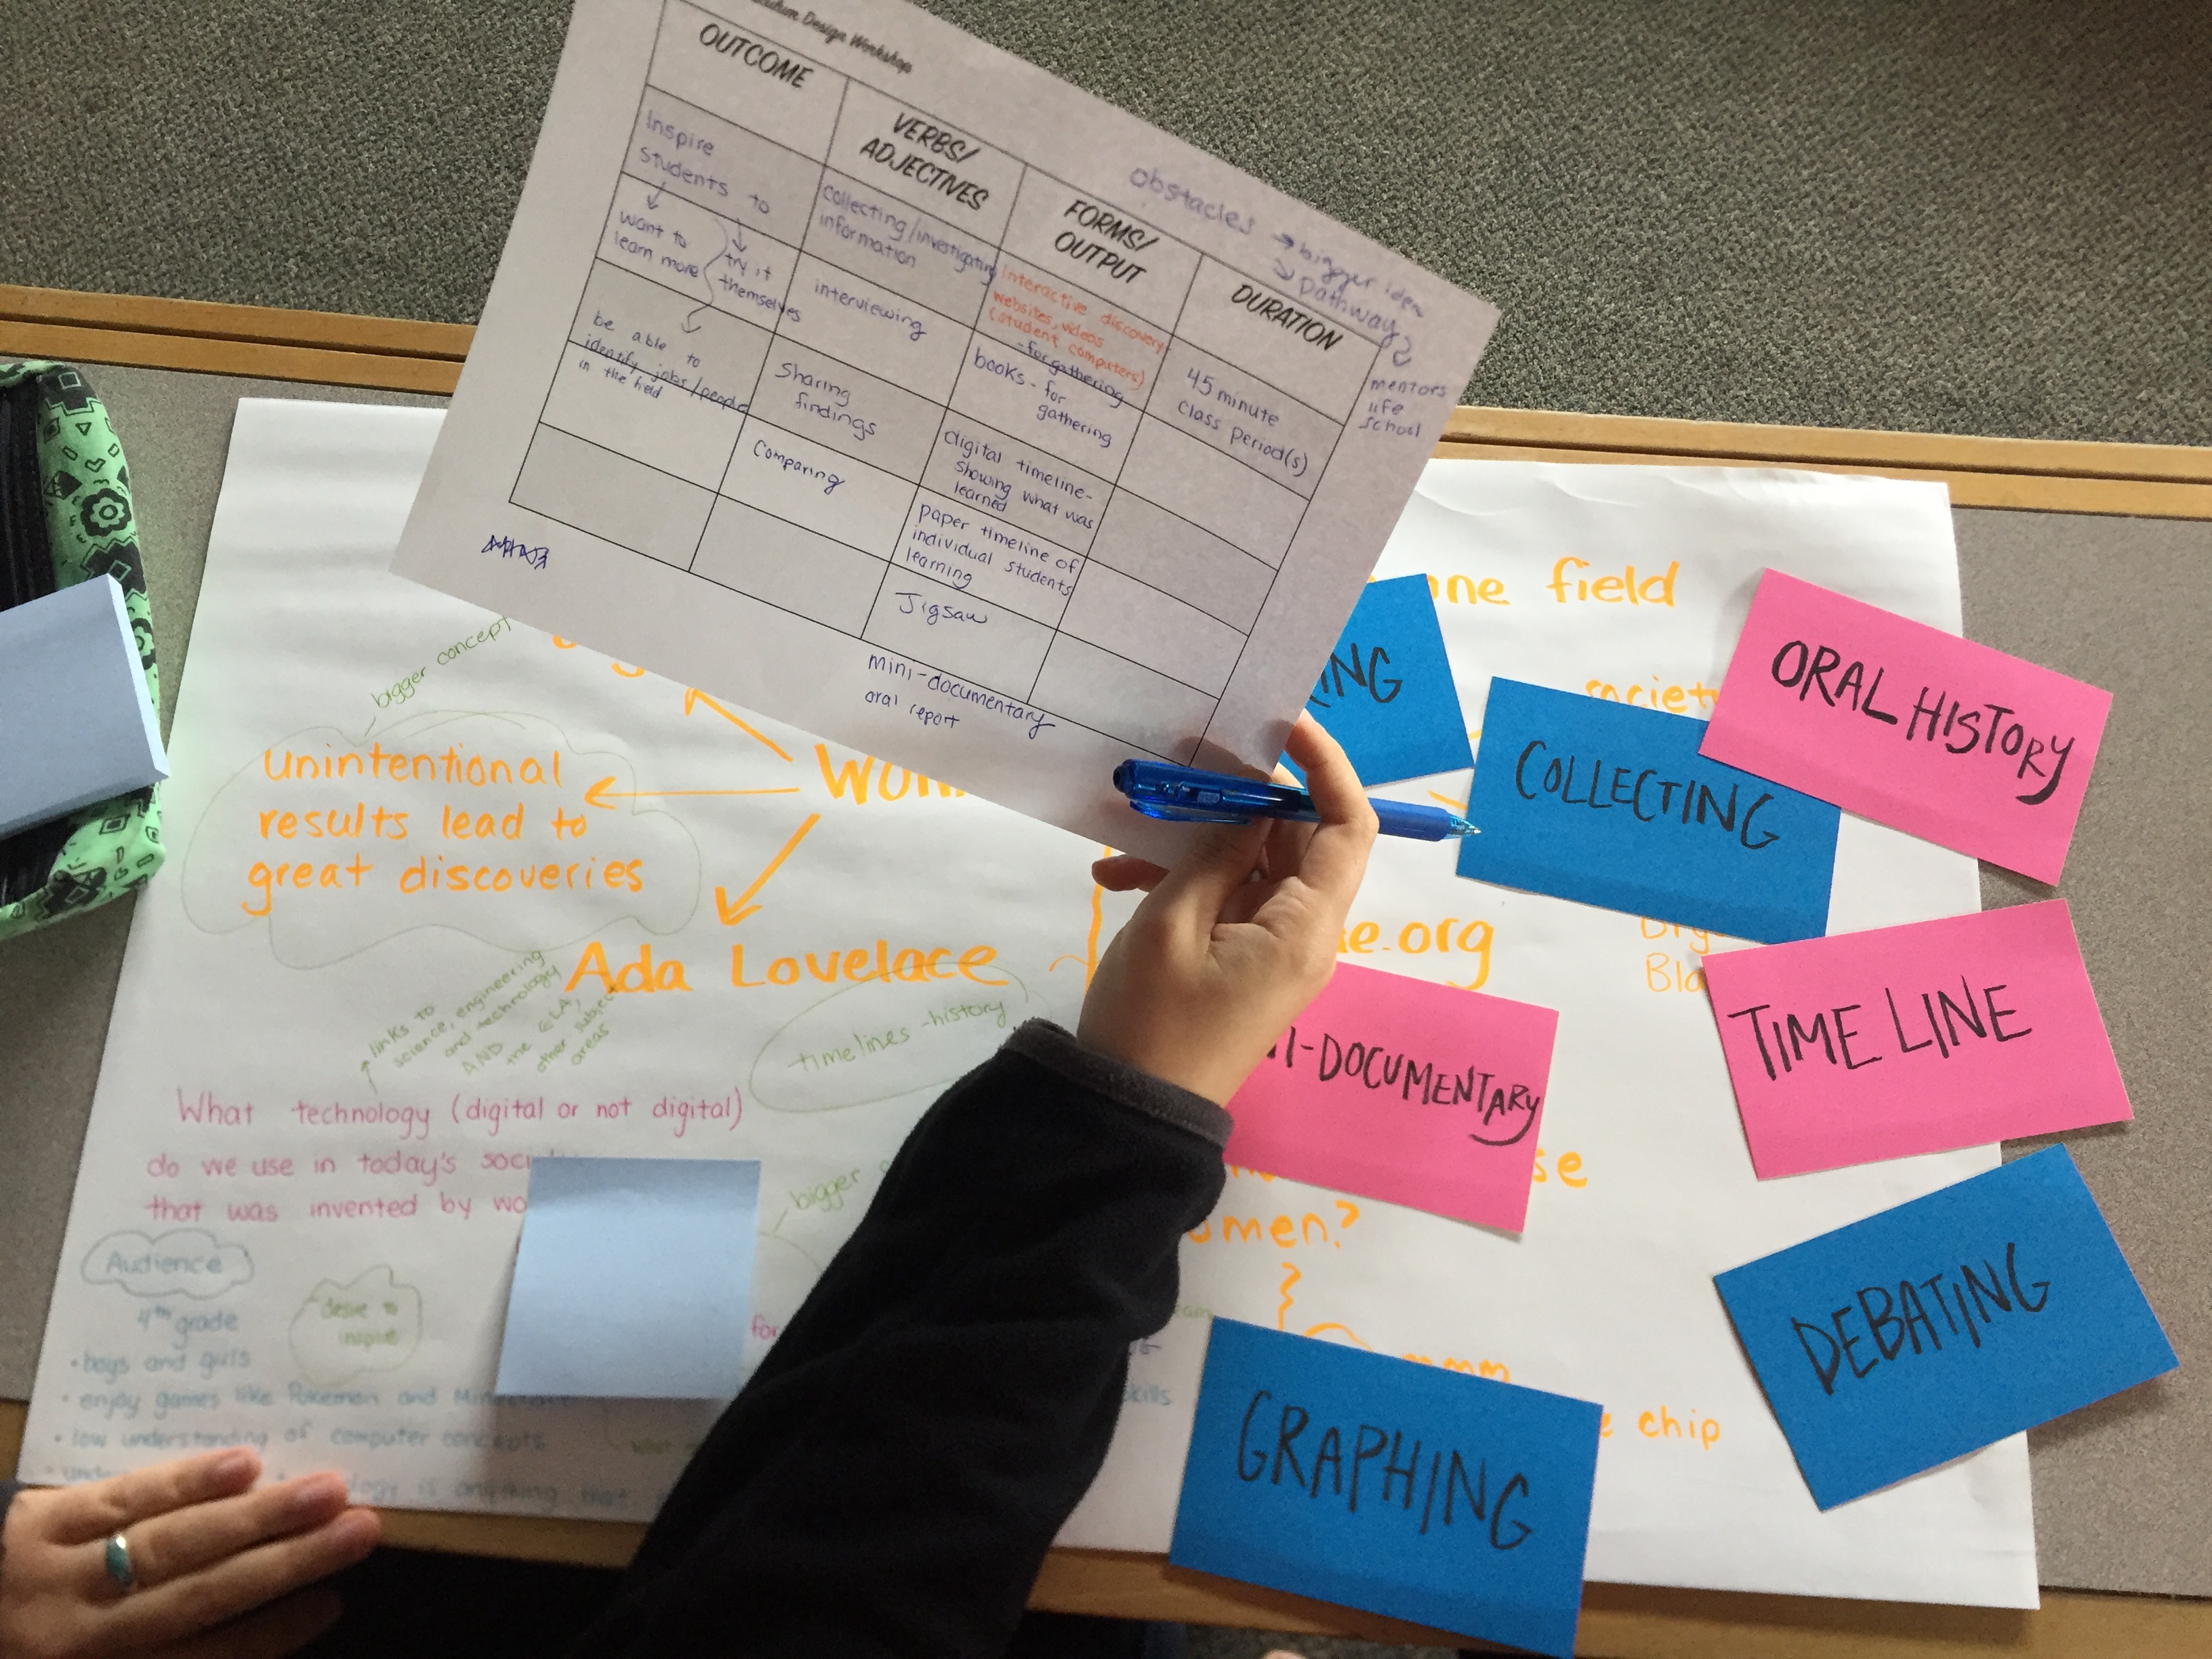 Design Workshop
OUTCOME
VERBS/
ADJECTIVES
FORMS/
OUTPUT
DURATION
Inspire
students to
want to
learn more
try it
themselves
be able to
identify jobs/people
in the field
collecting/investigating
information
interviewing
Sharing
findings
Comparing
Interactive discovery-
websites, videos
(student computers)
- for gathering
books - for
gathering
digital timeline-
showing what was
learned
paper timeline of
individual students
learning
Jigsaw
mini-documentary
oral report
45 minute
class period(s)
obstacles
bigger idea
pathway
mentors
life
school
ne field
society
ING
COLLECTING
ORAL HISTORY
TIME LINE
I-DOCUMENTARY
DEBATING
GRAPHING
bigger concept
Unintentional
results lead to
great discoveries
Ada Lovelace
.org
Bla
links to
science, engineering
and technology
AND the ELA,
other subject
areas
timelines - history
What technology (digital or not digital)
do we use in today's soci
that was invented by wo
bigger
se
omen?
Audience
4th grade
• boys and girls
• enjoy games like Pokemon and Min
• low understanding of computer concepts
ology is anything that
desire to
inspire
for
kills
e chip